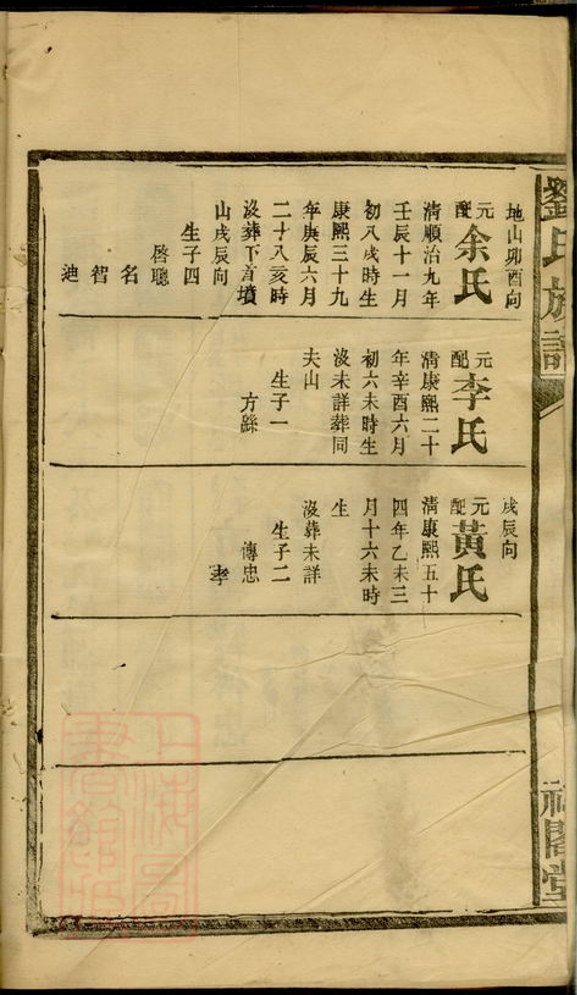 劉氏族譜
地山卯酉向
元配余氏
清順治九年
壬辰十一月
初八戌時生
康熙三十九
年庚辰六月
二十八亥時
沒葬下首墳
山戌辰向
生子四
啓聰
名
智
迪
元配李氏
清康熙二十
年辛酉六月
初六未時生
沒未詳葬同
夫山
生子一
方繇
戌辰向
元配黃氏
清康熙五十
四年乙未三
月十六未時
生
沒葬未詳
生子二
傳忠
孝
閣堂
上海圖
書館